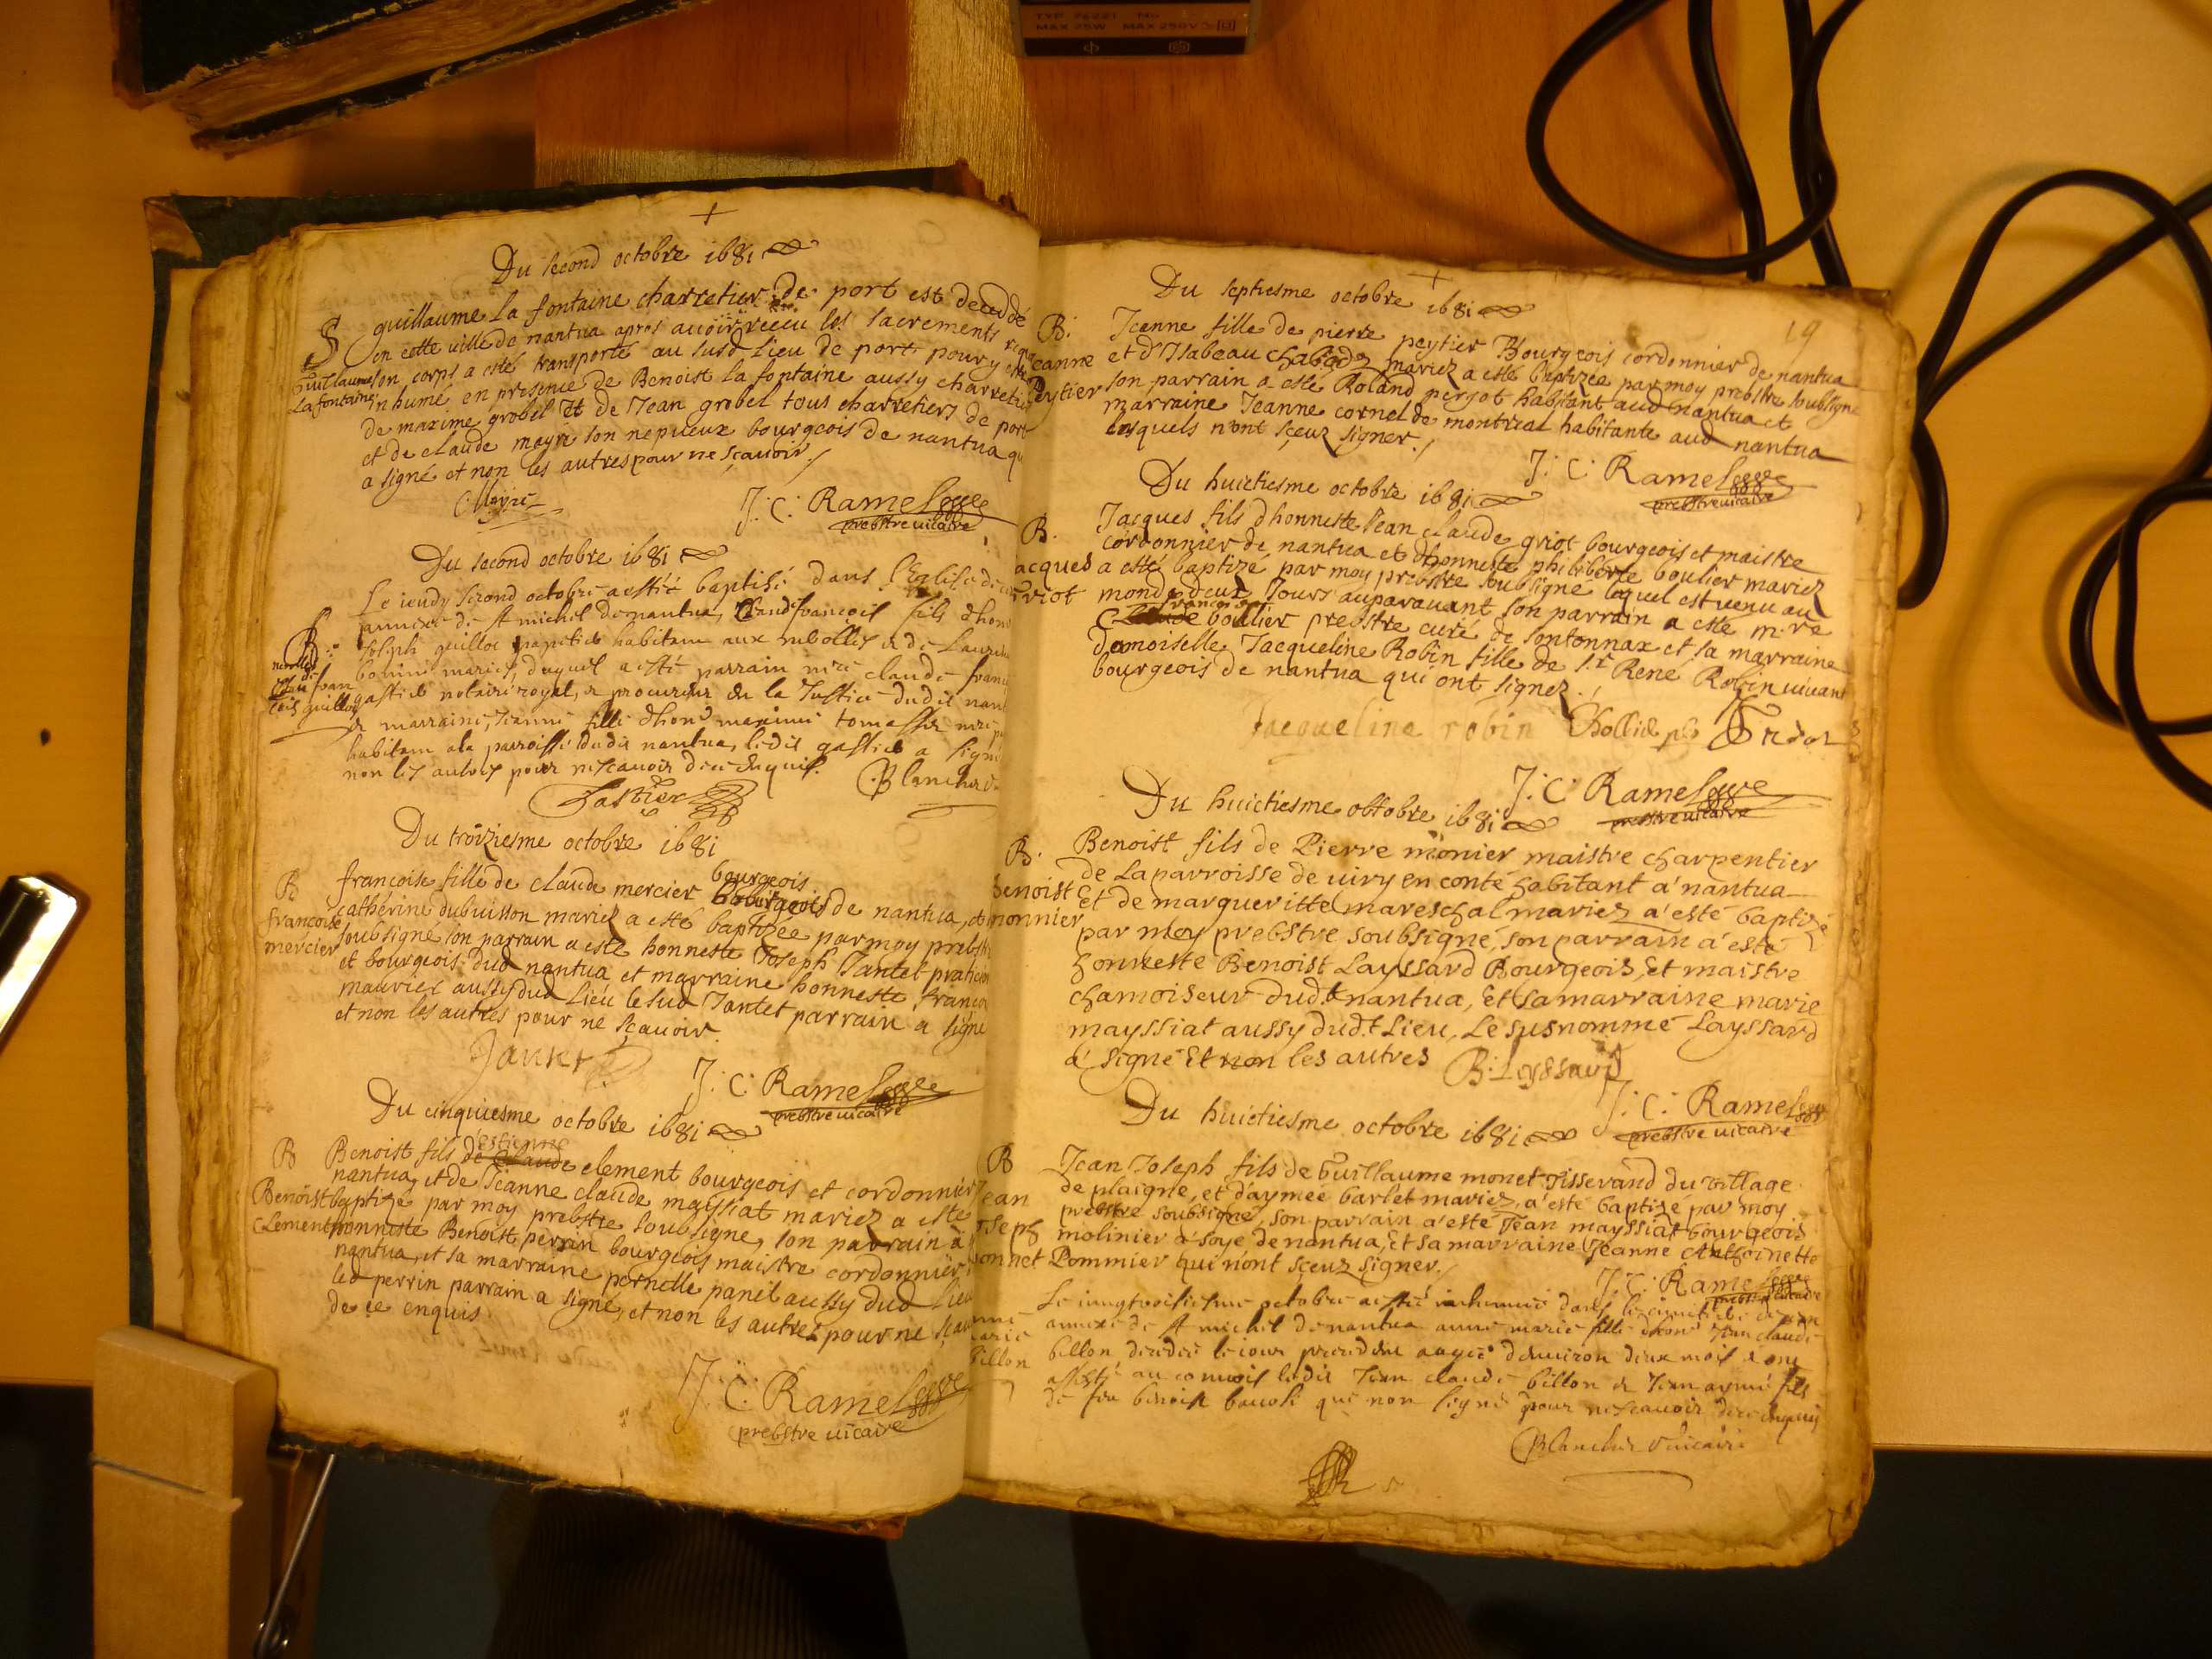 TYP 76221 No
MAX 25W MAX 250V
Du second octobre 1681
S
Guillaume
La fontaine
guillaume La fontaine charretier de port est deceddé
en cette ville de nantua apres auoir receu les sacrements
son corps a esté transporté au susd lieu de port pour y estre
inhumé en presence de Benoist La fontaine aussy charretier
de maxime grobel et de Jean grobel tous charretiers de port
et de claude mayre son nepueux bourgeois de nantua qui
a signé et non les autres pour ne sçauoir
Mayre
J: C: Ramel
prebstre uicaire
Du second octobre 1681
B
Le ieudy second octobre a esté baptisé dans l'Eglise
annexe de st michel de nantua, Claude françois fils d'hon
Joseph guillot habitant aux neirolles & de
mariés, duquel a esté parrain mre claude
gastier notaire royal, & procureur en la Justice dudit
& marraine, Jeanne fille d'hon
habitant a la parroisse dudit nantua, ledit gastier a signé
non les autres pour ne scauoir de ce enquis.
Gastier
Blanchet
Du troiziesme octobre 1681
B
françoise
mercier
françoise fille de claude mercier bourgeois
bourgeois de nantua, et
catherine dubuisson mariez a esté baptizée par moy prebstre
soubsigné son parrain a esté honneste Joseph Jantet praticien
et bourgeois dud nantua et marraine honneste
maurier aussy dud Lieu le sud Jantet parrain a signé
et non les autres pour ne sçauoir.
Jantet
J: C: Ramel
prebstre uicaire
Du cinquiesme octobre 1681
B
Benoist
Clement
Benoist fils de estienne clement bourgeois et cordonnier
nantua, et de Jeanne claude maissiat mariez a esté
baptizé par moy prebstre soubsigné, son parrain a
honneste Benoist perrin bourgeois maistre cordonnier
nantua, et sa marraine pernette panet aussy dud Lieu
led perrin parrain a signé, et non les autres pour ne
de ce enquis
J: C: Ramel
prebstre uicaire
19
Du septiesme octobre 1681
B.
Jeanne
Peytier
Jeanne fille de pierre peytier Bourgeois cordonnier de nantua
et d'Isabeau mariez a esté baptizée par moy prebstre soubsigné
son parrain a esté Roland perjot habitant aud nantua et
marraine Jeanne cornel de montreal habitante aud nantua
lesquels n'ont sçeuz signer.
J: C: Ramel
prebstre uicaire
Du huictiesme octobre 1681
B.
Jacques
griot
Jacques fils d'honneste Jean claude griot bourgeois et maistre
cordonnier de nantua et d'honneste philiberte boulier mariez
a esté baptizé par moy prebstre soubsigné lequel est uenu au
monde deux Jours auparauant son parrain a esté mre
françois boulier prebstre curé de sontonnax et sa marraine
damoiselle Jacqueline Robin fille de sr René Robin uiuant
bourgeois de nantua qui ont signez.
Jacqueline robin
J: C: Ramel
prebstre uicaire
Du huictiesme octobre 1681
B.
Benoist
monnier
Benoist fils de Pierre monier maistre charpentier
de La parroisse de uiry en conté habitant a nantua
Et de margueritte mareschal mariez a esté baptizé
par moy prebstre soubsigné, son parrain a esté
honneste Benoist Layssard Bourgeois, et maistre
chamoiseur dud.t nantua, Et sa marraine marie
mayssiat aussy dud.t Lieu, Le susnommé Layssard
a signé Et non les autres
B. Leyssard
J: C: Ramel
prebstre uicaire
Du huictiesme octobre 1681
B
Jean
Joseph
monnet
Jean Joseph fils de Guillaume monet Tisserand du uillage
de plaigne, et d'aymee barlet mariez, a esté baptizé par moy
prebstre soubsigné, son parrain a esté Jean mayssiat bourgeois
molinier a soye de nantua, Et sa marraine Jeanne Anthoinette
Pommier qui n'ont sçeuz signer.
J: C: Ramel
prebstre uicaire
anne
marie
billon
Le uingtroisiesme octobre a esté inhumée dans le cimetiere de
annexe de st michel de nantua anne marie fille d'hon Jean claude
billon decedée le iour precedent aagée d'enuiron deux mois & ont
assisté au conuois ledit Jean claude billon & Jean aymé fils
de feu benoist qui non signé pour ne scauoir de ce enquis
Blanchet uicaire